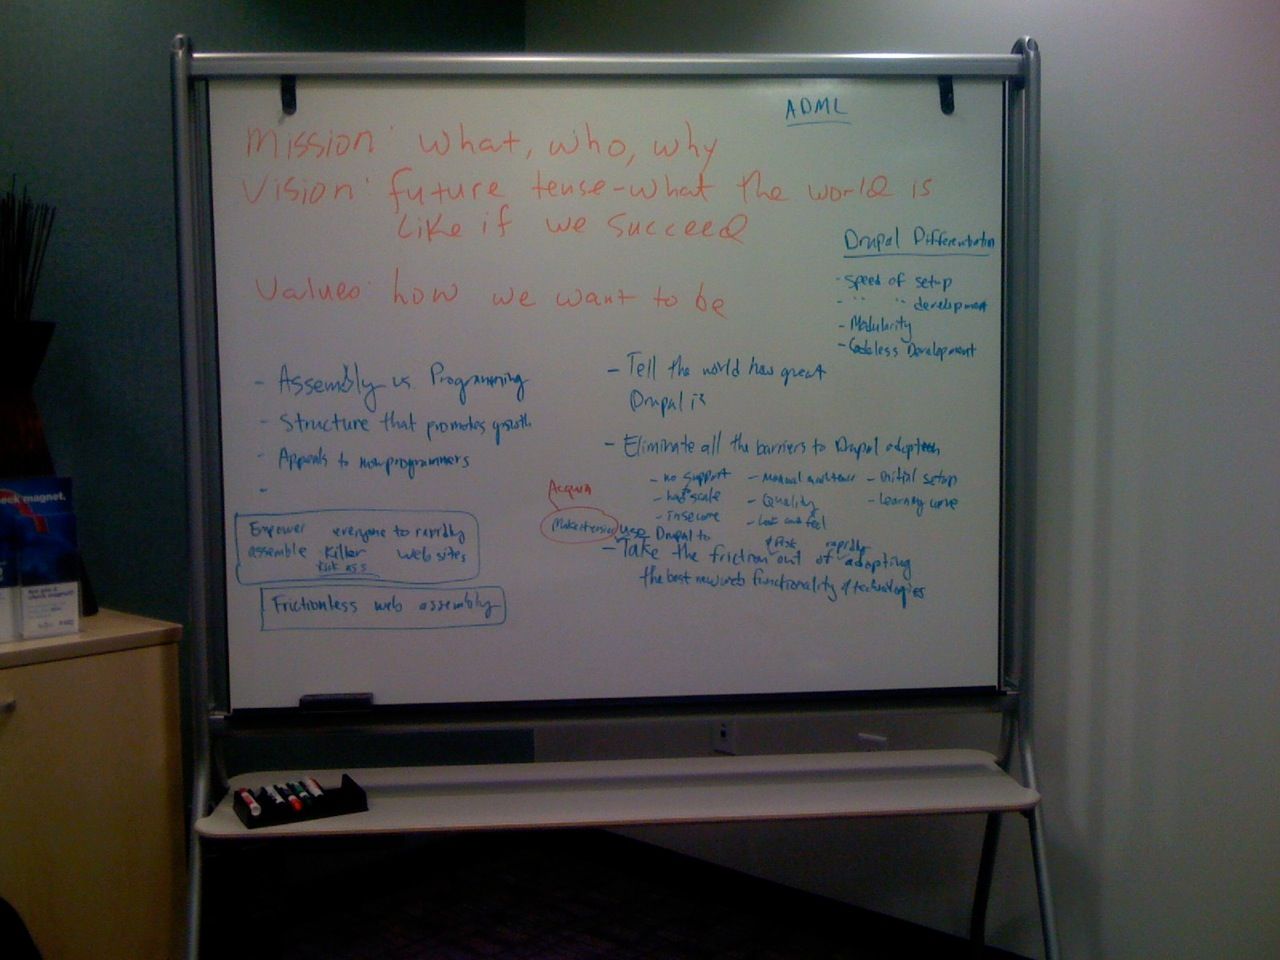 ADML
Mission: what, who, why
Vision: future tense-what the world is
like if we succeed
Values: how we want to be
Drupal Differentiation
- Speed of setup
- " " development
- Modularity
- Codeless Development
- Assembly vs Programming
- Structure that promotes growth
- Appeals to nonprogrammers
-
Empower everyone to rapidly
assemble killer web sites
kick ass
Frictionless web assembly
- Tell the world how great
Drupal is
- Eliminate all the barriers to Drupal adoption
- no support - - initial setup
- scale - Quality - learning curve
- insecure - Look and feel
Acquia
use Drupal to
& risk rapidly
- Take the friction out of adopting
the best new web functionality & technologies
eek magnet.